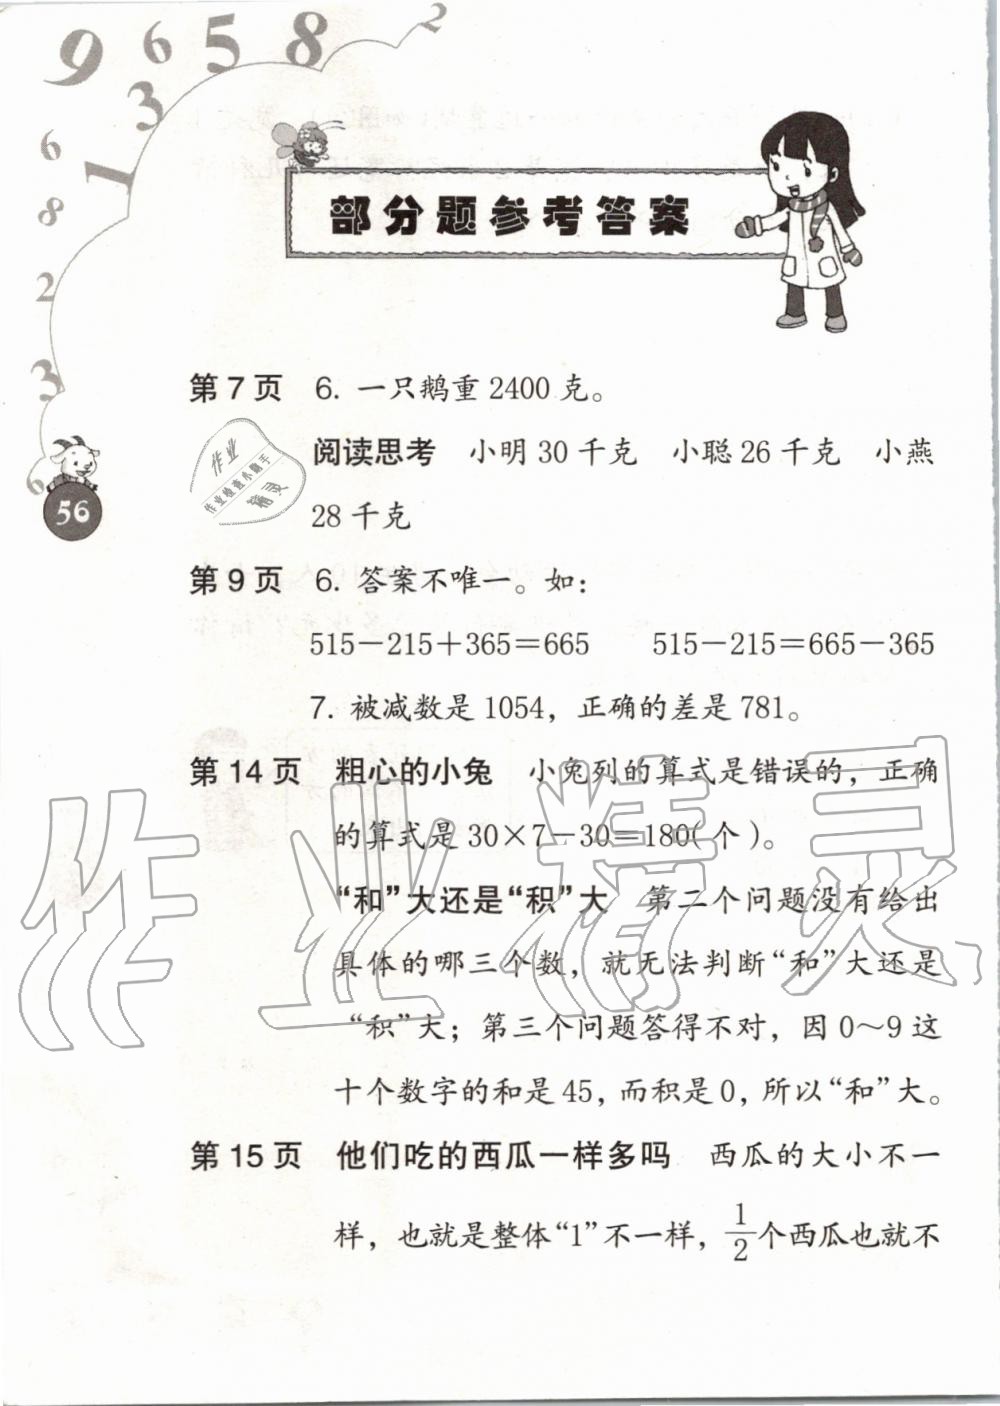 9 6 5 8 2
3
6
1
8
2
3
6
56
部分题参考答案
第7页 6. 一只鹅重2400克。
阅读思考 小明30千克 小聪26千克 小燕
28千克
作业
作业检查小助手
精灵
第9页 6. 答案不唯一。如：
515－215＋365＝665 515－215＝665－365
7. 被减数是1054，正确的差是781。
第14页 粗心的小兔 小兔列的算式是错误的，正确
的算式是30×7－30＝180(个)。
“和”大还是“积”大 第二个问题没有给出
具体的哪三个数，就无法判断“和”大还是
“积”大；第三个问题答得不对，因0～9这
十个数字的和是45，而积是0，所以“和”大。
第15页 他们吃的西瓜一样多吗 西瓜的大小不一
样，也就是整体“1”不一样，1/2个西瓜也就不
作业精灵